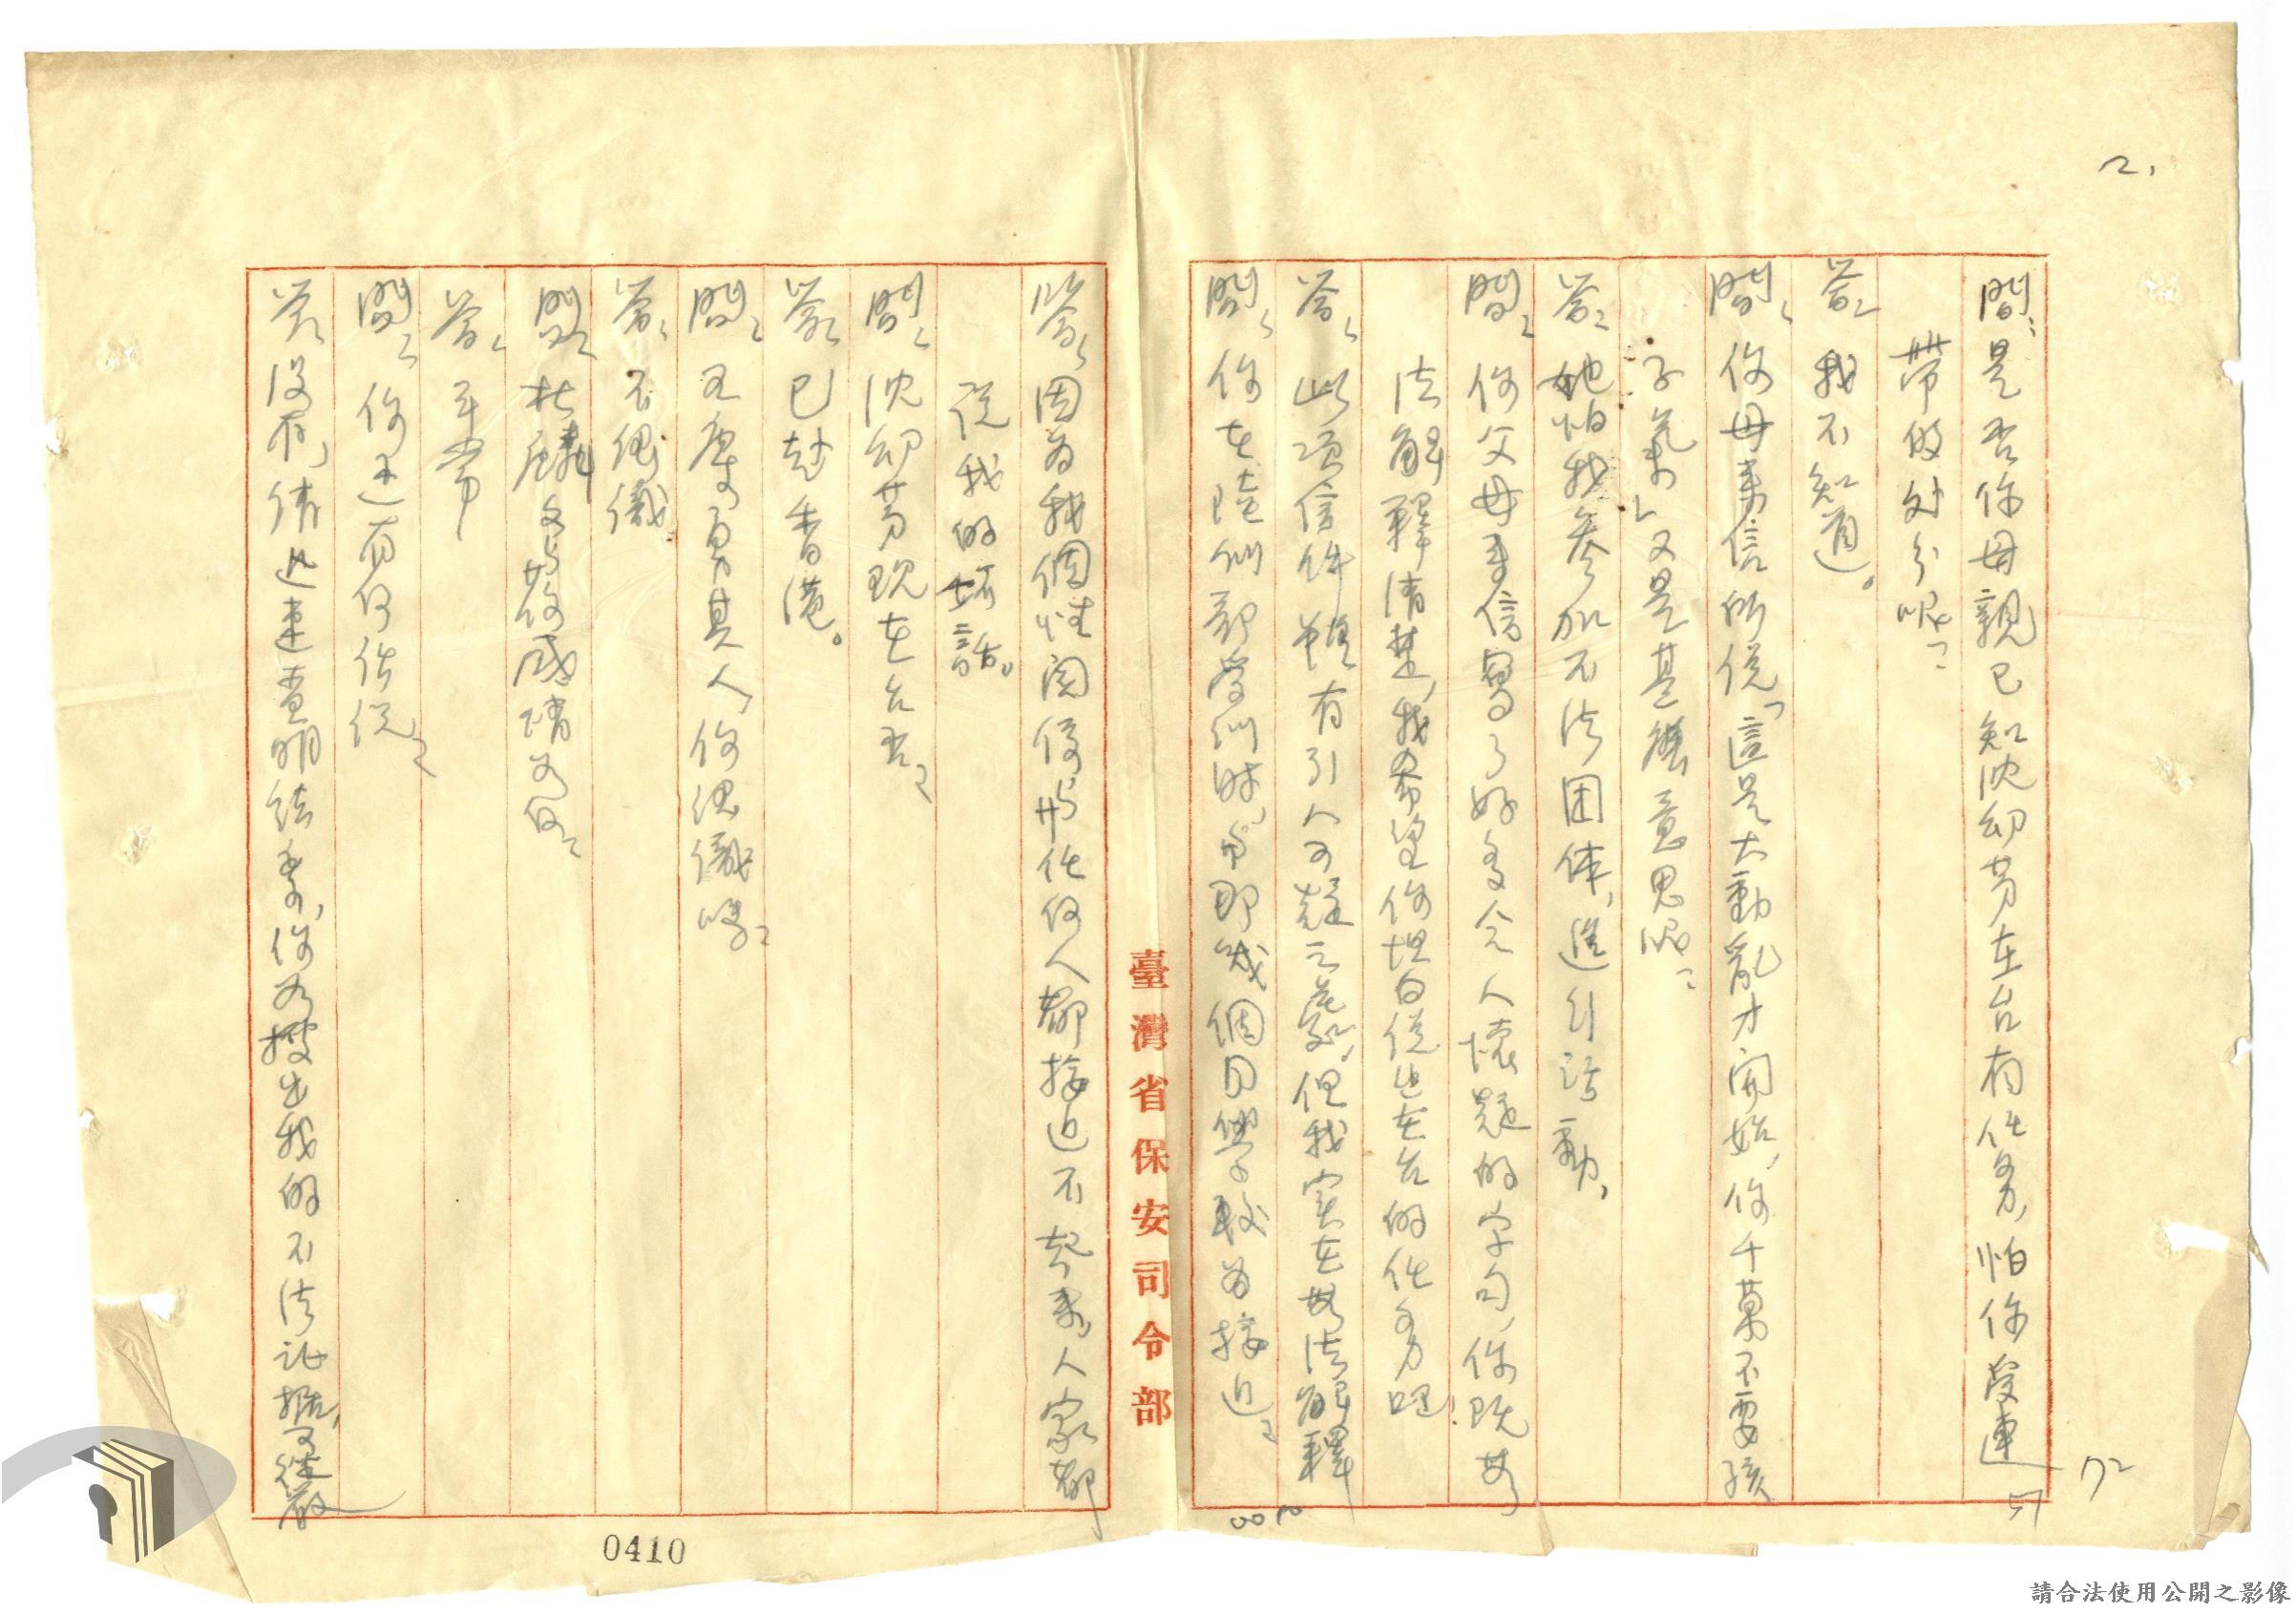 2.
問：是否你母親已知沈幼芳在台有任务,怕你受連
帶的处分呢？
答：我不知道。
問：你母来信所说「這是大動亂才開始,你千萬不要孩
子氣」又是甚麼意思呢？
答：她怕我参加不法团体,進行活動,
問：你父母来信寫了好多令人懷疑的字句,你既無
法解釋清楚,我希望你坦白说出在台的任务吧!
答：此项信件雖有引人可疑之處,但我实在無法解釋
問：你在陸训部受训時,与那幾個同學較为接近？
臺灣省保安司令部
答：因为我個性関係与任何人都接近不起来,人家都
说我的坏話。
問：沈幼芳現在台否？
答：已赴香港。
問：勇其人,你認識嗎？
答：不認識
問：杜麟文与你感情为何？
答：平常
問：你还有何话说？
答：没有,请迅速查明結案,你为搜出我的不法证据,可從嚴
72
0410
請合法使用公開之影像